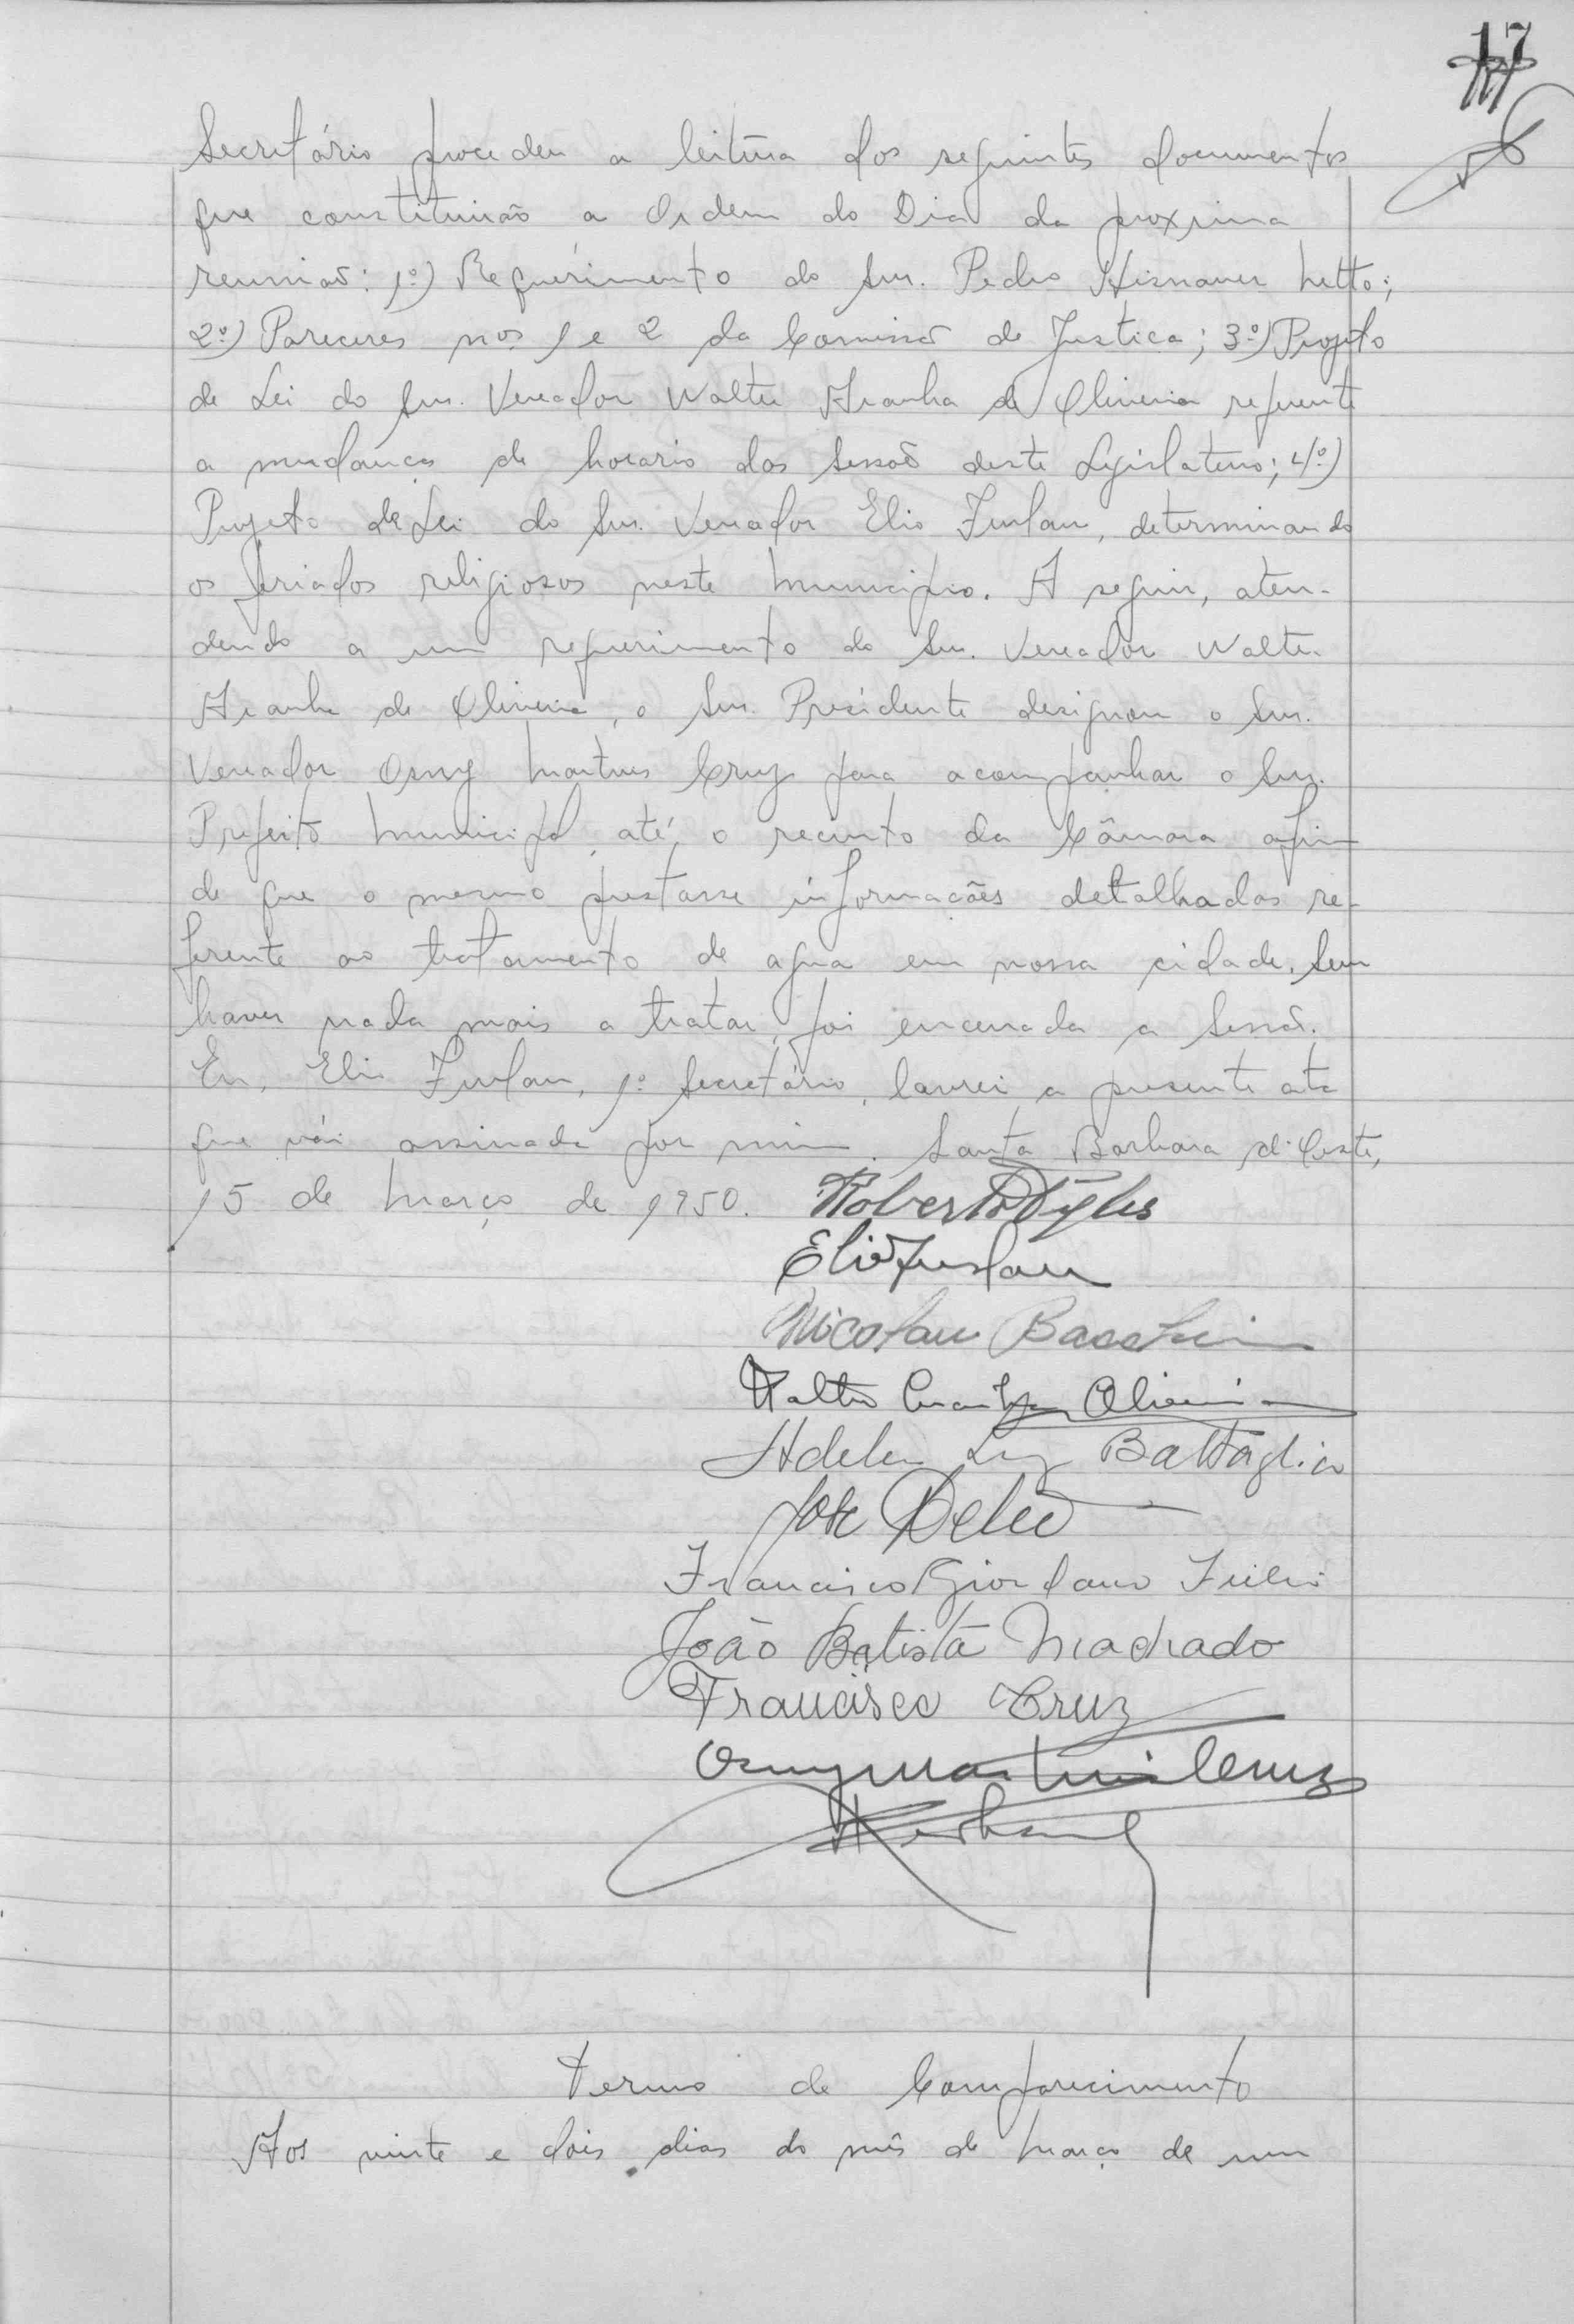 17
Secretário procedeu a leitura dos seguintes documentos
que constituirão a Ordem do Dia da proxima
reunião: 1º) Requerimento do Snr. Pedro Netto;
2º) Pareceres nos. 1 e 2 da Comissão de Justiça; 3º) Projeto
de Lei do Snr. Vereador Walter Aranha de Oliveira referente
a mudança de horario das Sessoã deste Legislativo; 4º)
Projeto de Lei do Snr. Vereador Elio Furlan, determinando
os feriados religiosos neste Municipio. A seguir, aten-
dendo a um requerimento do Snr. Vereador Walter
Aranha de Oliveira, o Snr. Presidente designou o Snr.
Vereador Osny Martins Cruz para acompanhar o Snr.
Prefeito Municipal até o recinto da Câmara afim
de que o mesmo prestasse informações detalhadas re-
ferente ao tratamento de agua em nossa cidade. Sem
haver nada mais a tratar, foi encerrada a Sessão.
Eu, Elio Furlan, 1º Secretário, lavrei a presente ata
que vái assinada por mim. Santa Barbara d'Oeste,
15 de Março de 1950.
Elio Furlan
Nicolau
Walter Aranha Oliveira
Luiz Battaglia
José
Francisco Giordano
João Batista Machado
Francisco Cruz
Osny Martins Cruz
Termo de Comparecimento
Aos vinte e dois dias do mês de Março de um